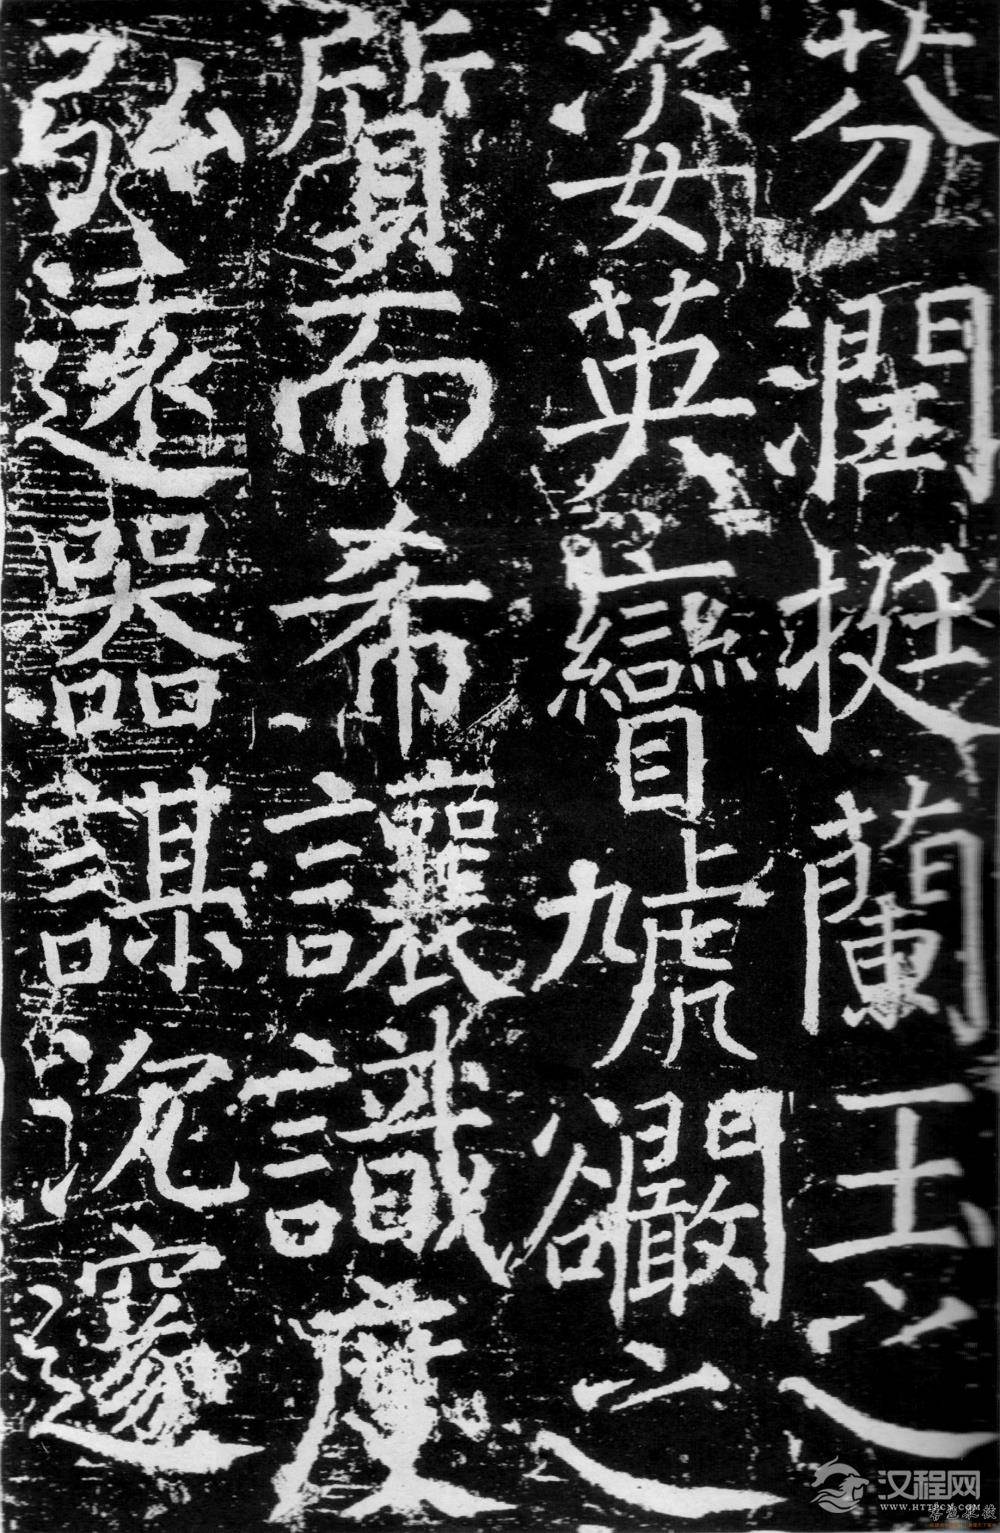 芬潤挺蘭玉之
姿英矕虓之
質而希讓識度
弘遠器謀沉邃
汉程网
WWW.HTTPCN.COM